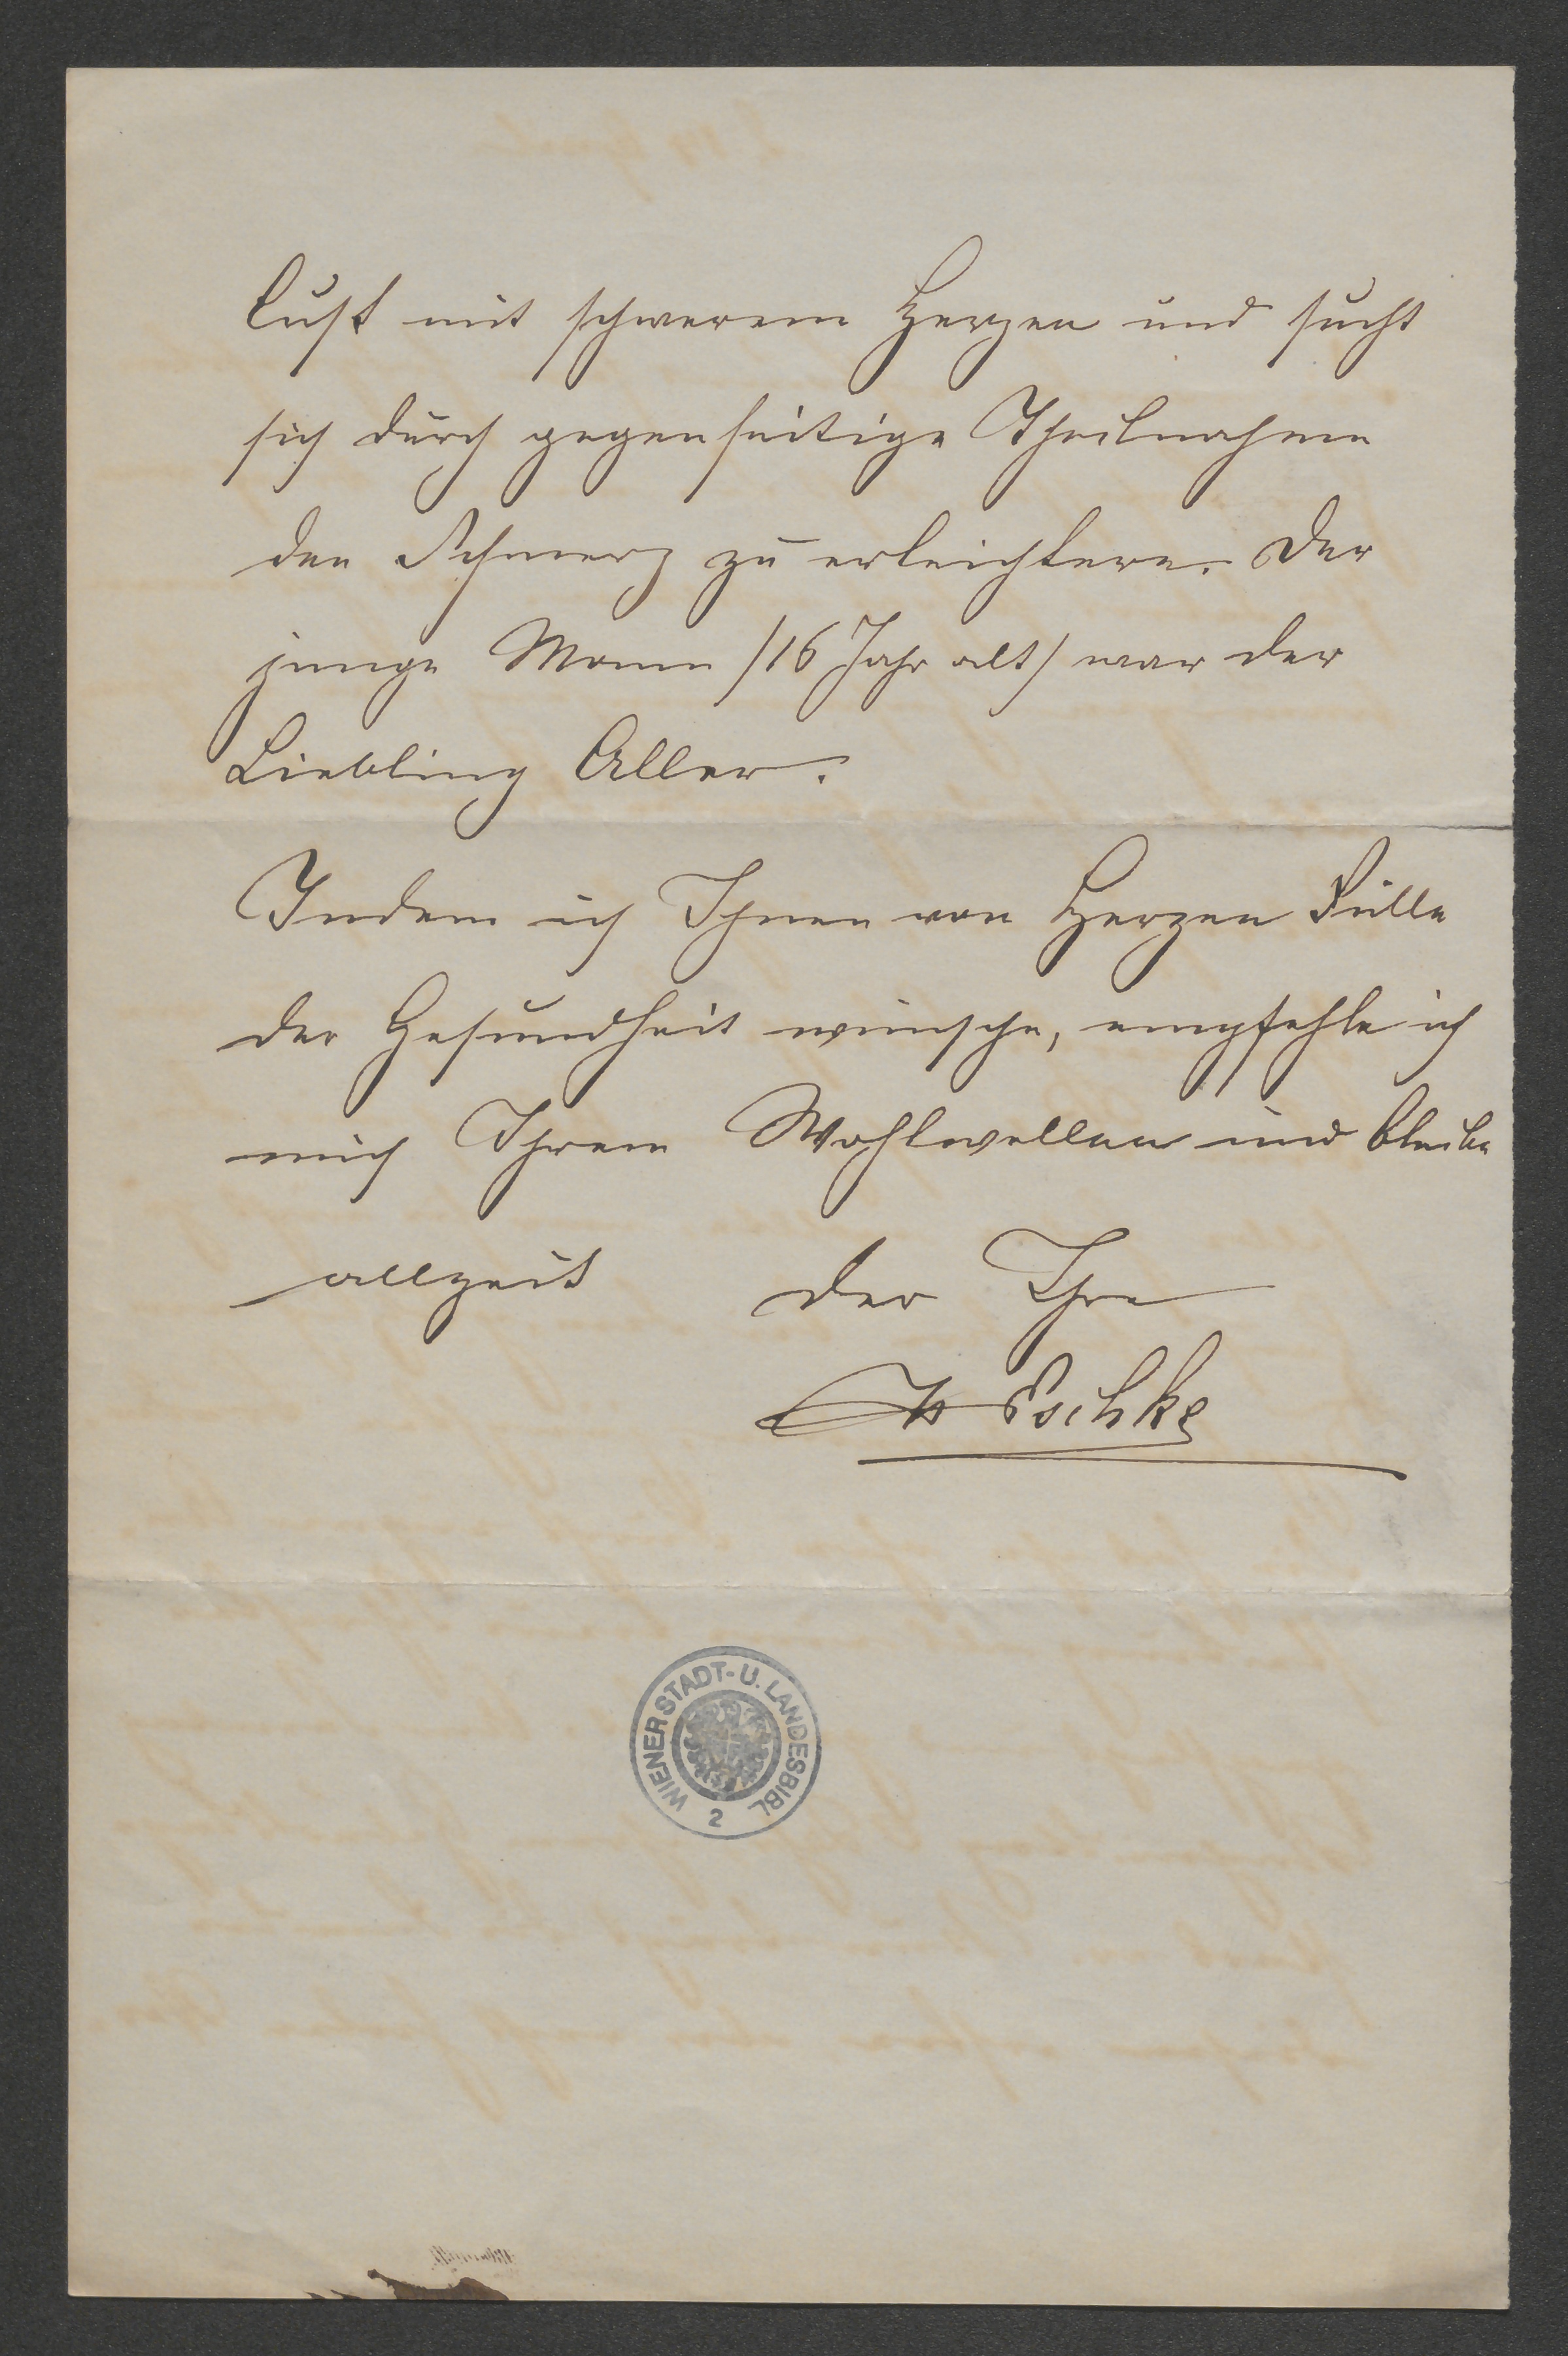 lust mit schwerem Herzen und sucht
sich durch gegenseitige Theilnahme
den Schmerz zu erleichtern. Der
junge Mann /16 Jahr alt/ war der
Liebling Aller.
Indem ich Ihnen von Herzen Fülle
der Gesundheit wünsche, empfehle ich
mich Ihrem Wohlwollen und bleibe
allzeit der Ihre
Eschke
WIENER STADT- U. LANDESBIBL
2